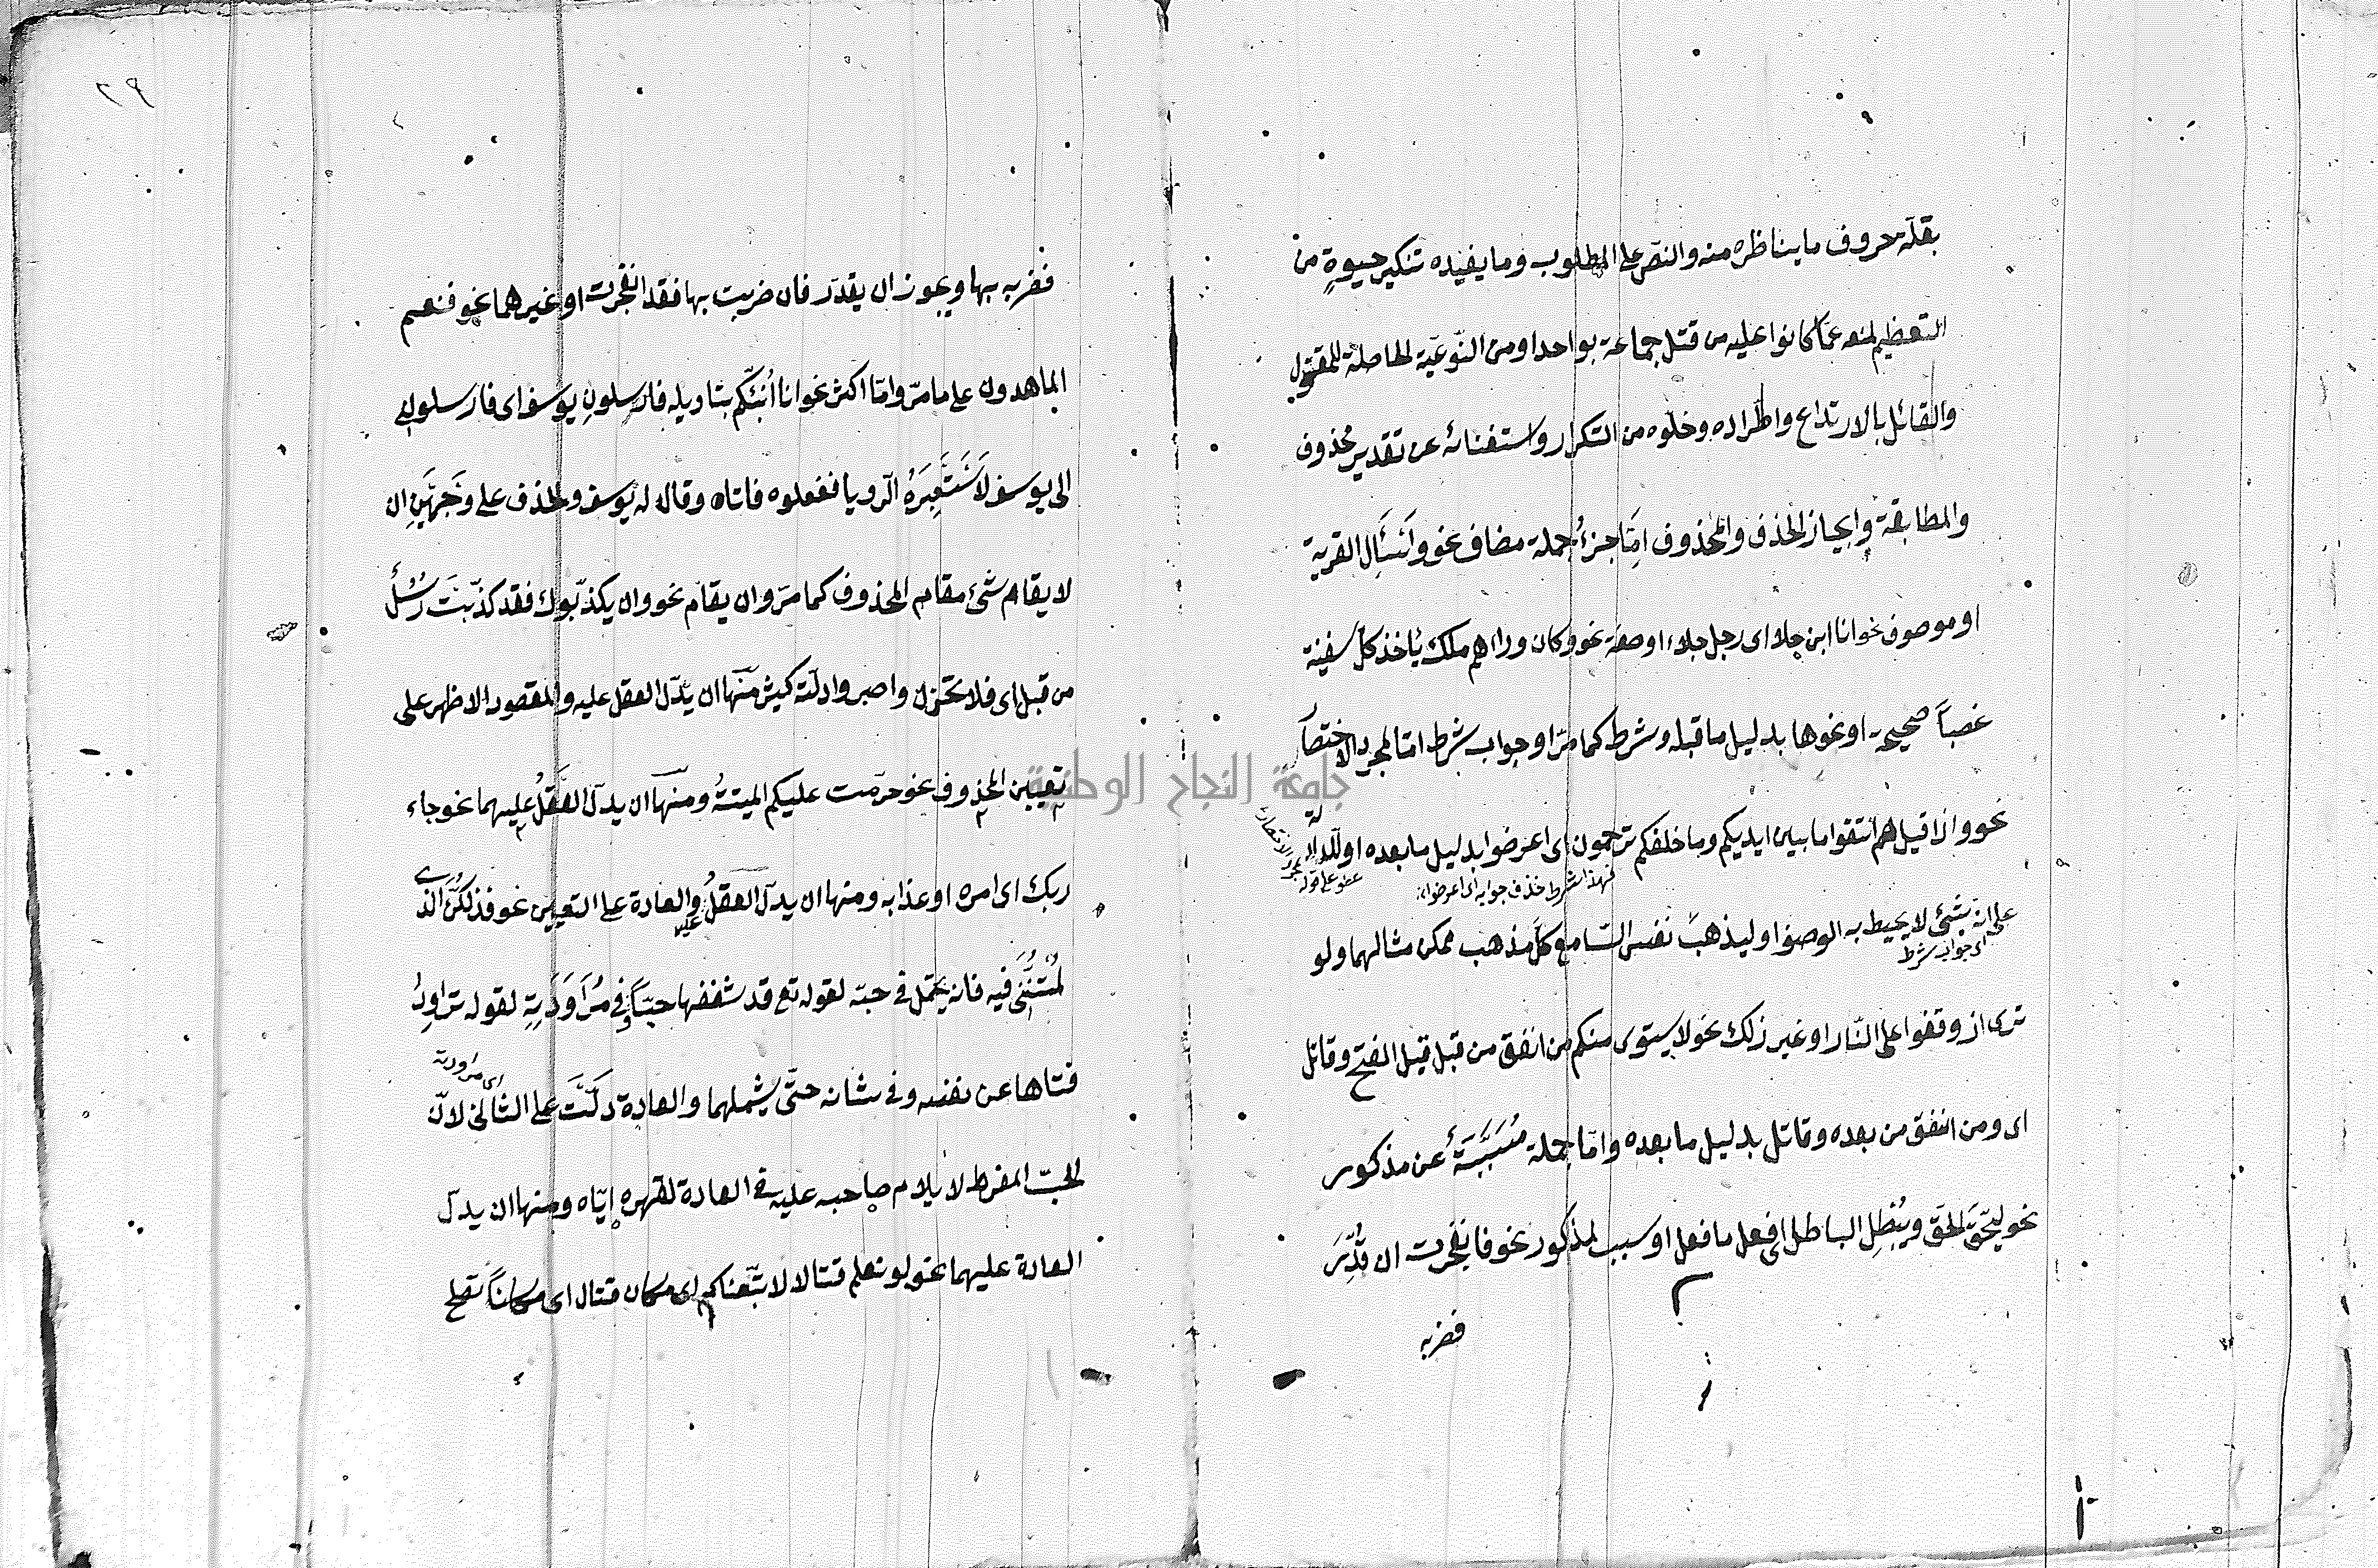 بقلّة حروف ما يناظره منه والنصّ على المطلوب وما يفيده تنكير حيوةٍ من
التعظيم لمنعه عمّا كانوا عليه من قتل جماعة بواحد او من النّوعيّة الحاصلة للمقتول
والقائل بالارتداع واطّراده وخلوّه من التكرار واستغنائه عن تقدير محذوف
والمطابقة وايجاز الحذف والمحذوف امّا جزءُ جملة مضاف نحو واَسْئَلِ القرية
او موصوف نحو انا ابن جلا اى رجل جلا، او صفة نحو وكان وراءهم ملك يأخذ كلّ سفينة
غصباً صحيحة او نحوها بدليل ما قبله وشرط كما مرّ او جواب شرط امّا لمجرد الاختصار
نحو واذا قيل لهم اتّقوا ما بين ايديكم وما خلفكم ترحمون اى اعرضوا بدليل ما بعده او للدلالة
عطف على قوله لمجرد الاختصار
فهذا شرط حذف جوابه اى اعرضوا
على انّه شئ لا يحيط به الوصف او ليذهبَ نفس السّامع كلّ مذهب ممكن مثالهما ولو
اى جواب شرط
ترى اذ وقفوا على النّار او غير ذلك نحو لا يستوى منكم من انفق من قبل قبل الفتح وقاتل
اى ومن انفق من بعده وقاتل بدليل ما بعده وامّا جملة مُسَبَّبَةٌ عن مذكور
نحو ليحقّ الحقّ ويُبْطِل الباطل اى فعل ما فعل او سبب لمذكور نحو فانفجرت ان قُدِّرَ
فضربه
٢٩
فضربه بها ويجوز ان يقدّر فان ضربت بها فقد انفجرت او غيرهما نحو فنعم
الماهدون على ما مرّ وامّا اكثر نحو انا اُنَبِّئكم بتاويله فارسلونِ يوسف اى فارسلونى
الى يوسف لاَسْتَعْبِرَهُ الرّويا ففعلوه فاتاه وقال له يوسف والحذف على وَجْهَيْنِ ان
لا يقام شئ مقام المحذوف كما مرّ وان يقام نحو وان يكذّبوك فقد كذّبت رُسُلٌ
من قبل اى فلا تحزن واصبر وادلّته كثير منها ان يدلّ العقل عليه والمقصود الاظهر على
تعيين المحذوف نحو حرّمت عليكم الميتةُ ومنها ان يدلّ العَقْلُ عليهما نحو جاء
ربك اى امره او عذابه ومنها ان يدلّ العقلُ عليه والعادة على التعيين نحو فذلكُنَّ الّذى
لُمْتُنَّنى فيه فانه يحتمل فى حبّه لقوله تع قد شغفها حبّاً وفى مُرَاوَدَتِه لقوله تراوِدُ
اى مراودته
فتاها عن نفسه وفى شانه حتّى يشملهما والعادة دَلَّتْ على الثانى لانّ
الحبّ المفرط لا يلام صاحبه عليه فى العادة لقهره ايّاه ومنها ان يدلّ
العادة عليهما نحو لو نعلم قتالا لاتّبعناكم اى مكان قتال اى مكاناً تصلح
جامعة النجاح الوطنية